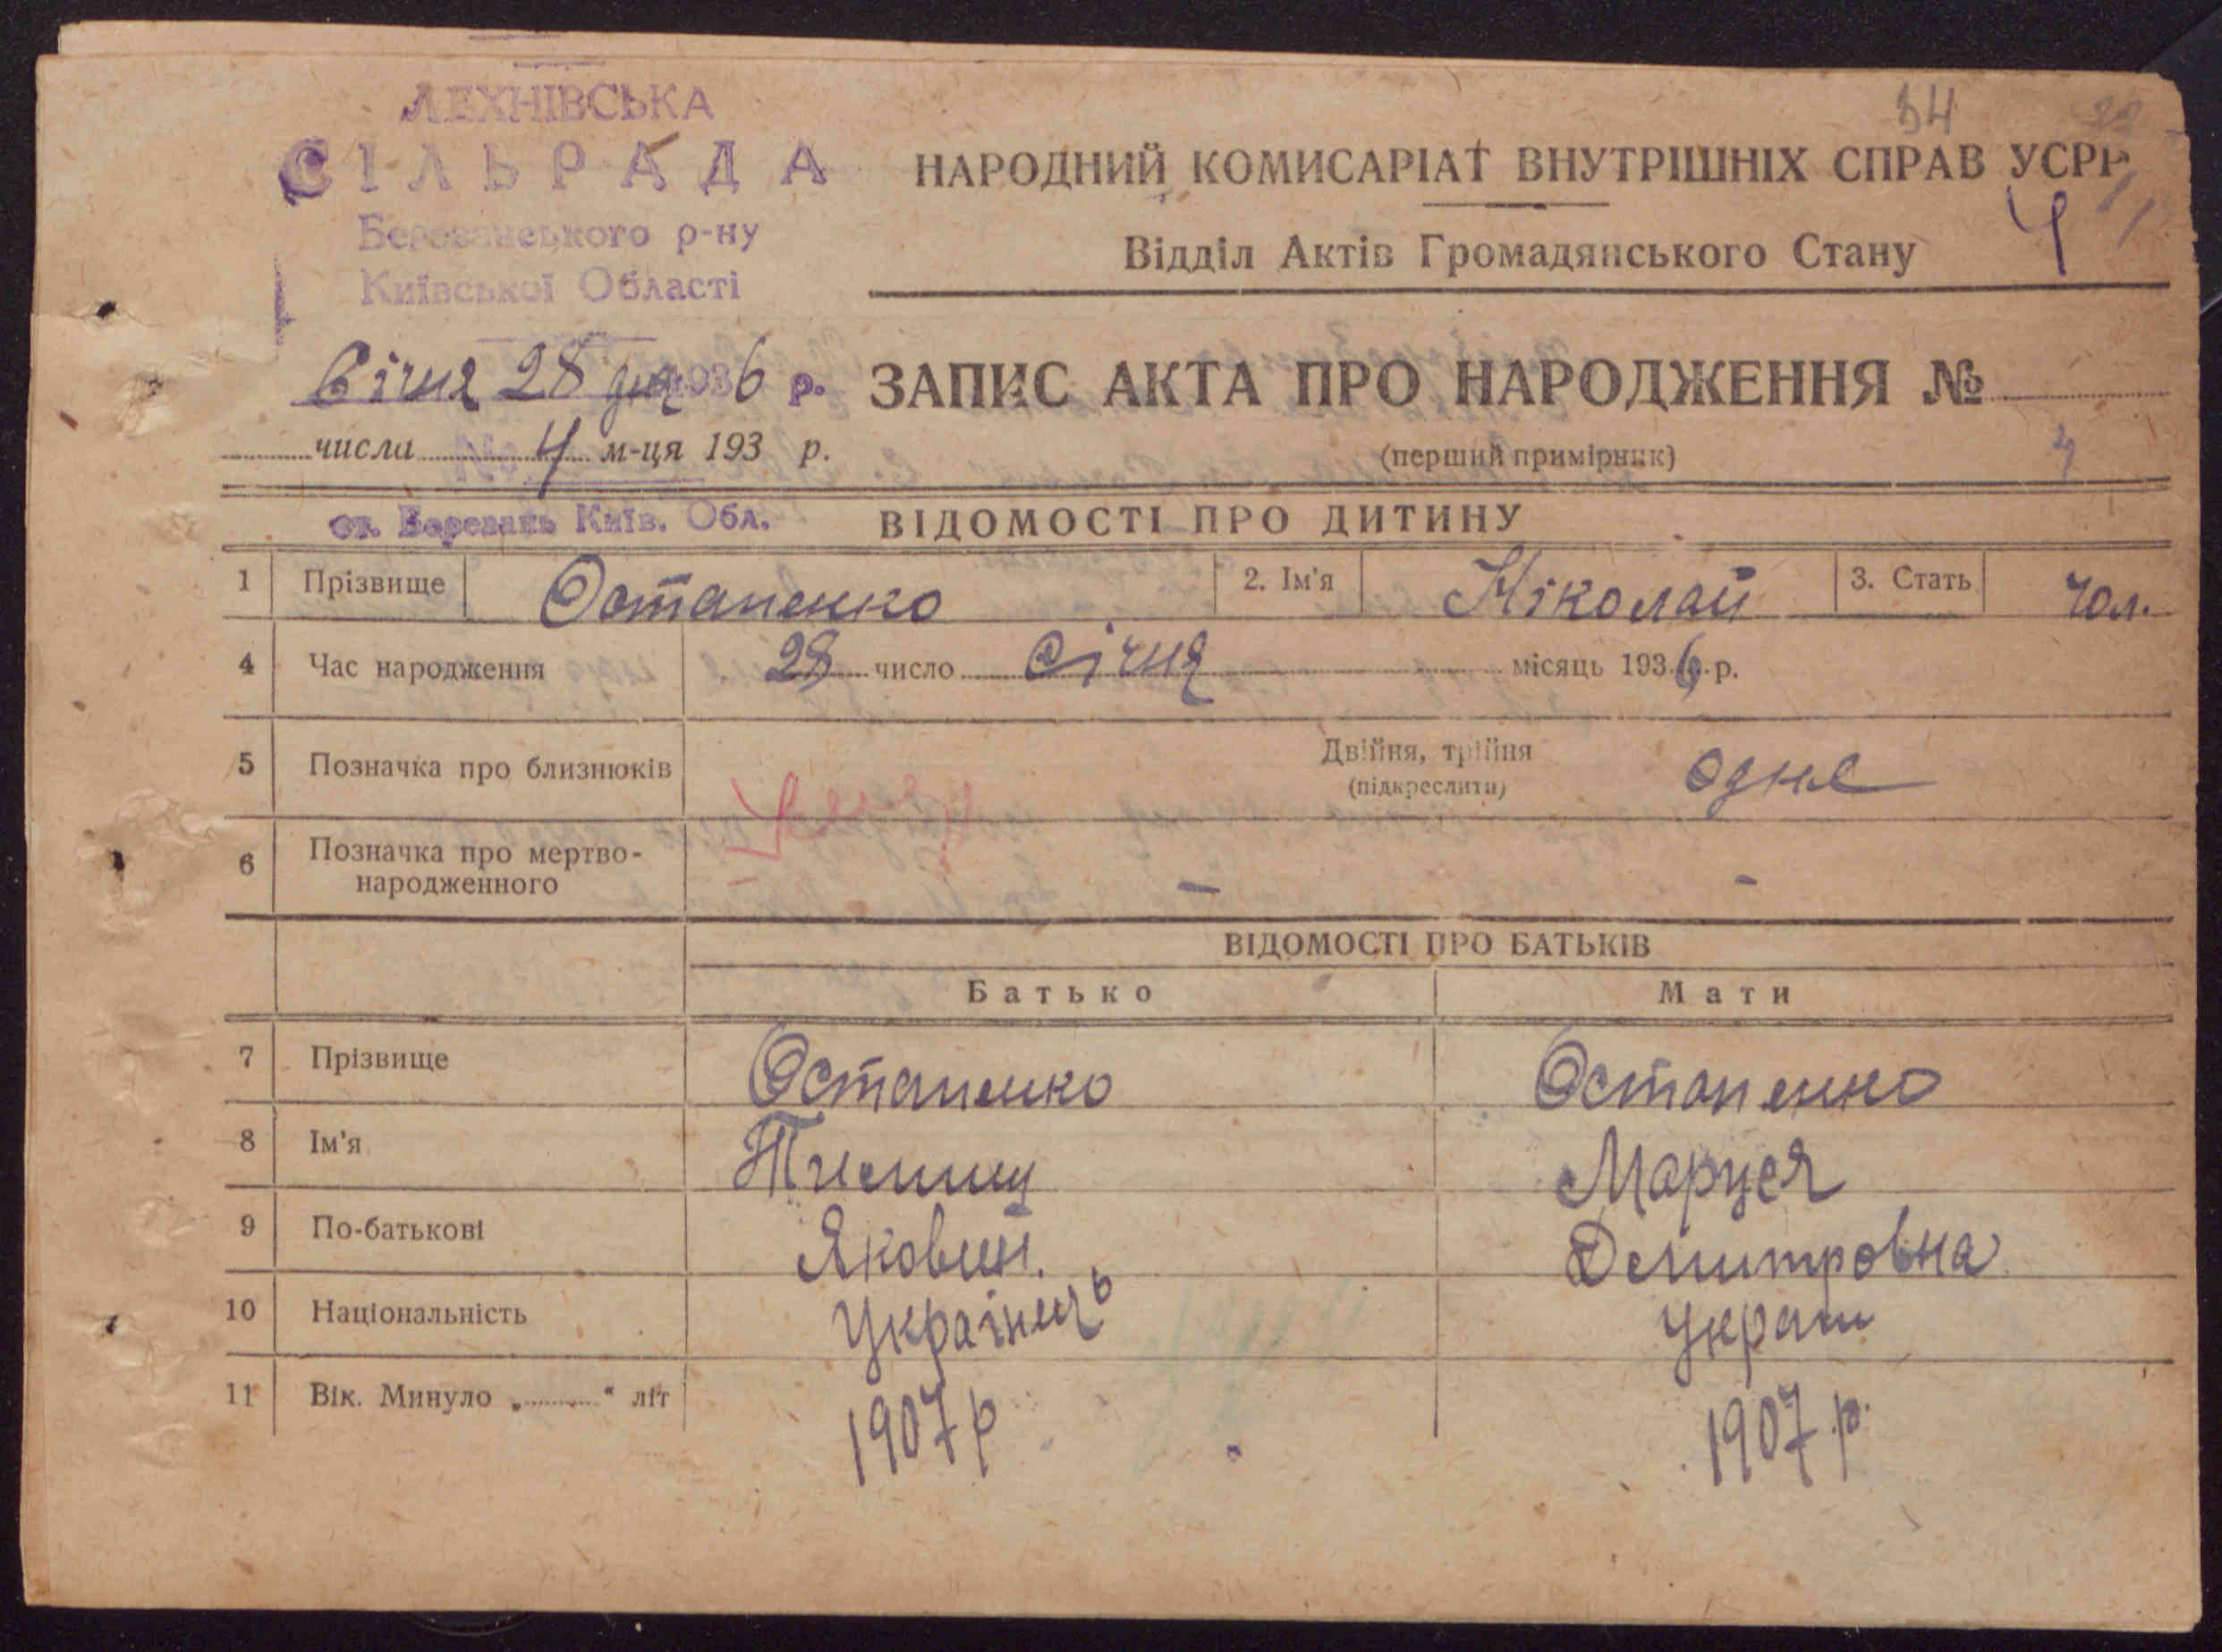 ЛЕХНІВСЬКА
СІЛЬРАДА
Березанського р-ну
Київської Області
Січня 28 дня 1936 р.
№ 4
числа м-ця 193 р.
ст. Березань Київ. Обл.
34 22
НАРОДНИЙ КОМИСАРІАТ ВНУТРІШНІХ СПРАВ УСРР
Відділ Актів Громадянського Стану 4
ЗАПИС АКТА ПРО НАРОДЖЕННЯ №
(перший примірник) 4
ВІДОМОСТІ ПРО ДИТИНУ
1 Прізвище Остапенко 2. Ім'я Ніколай 3. Стать чол.
4 Час народження 28 число Січня місяць 1936 р.
5 Позначка про близнюків Двійня, трійня (підкреслити) одне
6 Позначка про мертво-
народженного – -
ВІДОМОСТІ ПРО БАТЬКІВ
Батько Мати
7 Прізвище Остапенко Остапенко
8 Ім'я Маруся
9 По-батькові Якович. Демитровна
10 Національність Українець Украін
11 Вік. Минуло „ “ літ 1907 р 1907 р.